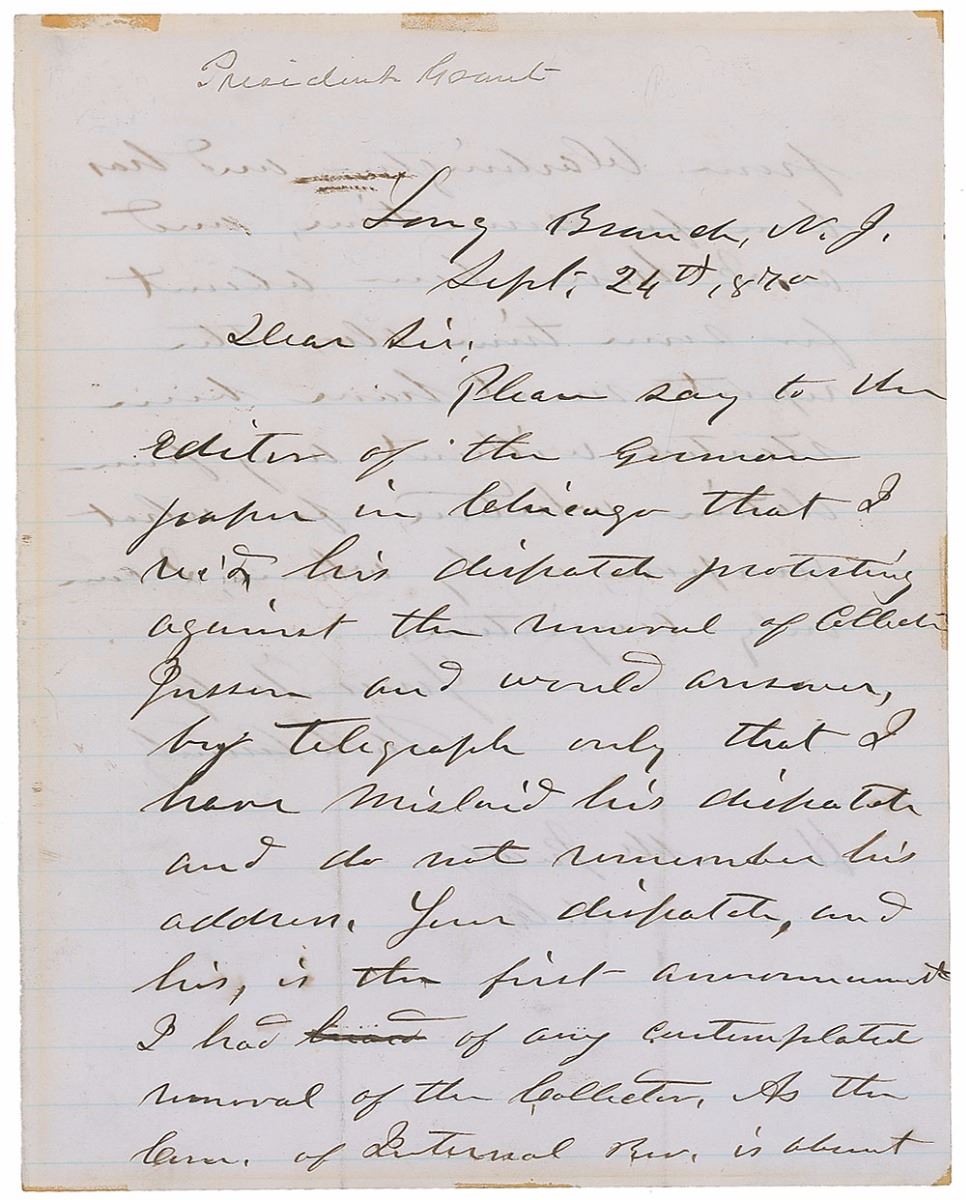 President Grant
Long Branch, N. J.
Sept. 24th, 1870
Dear Sir;
Please say to the
editor of the German
paper in Chicago that I
rec'd, his dispatch protesting
against the removal of Collector
Jussen and would answer,
by telegraph only that I
have mislaid his dispatch
and do not remember his
address. Your dispatch, and
his, is the first announcement
I had heard of any contemplated
removal of the Collector. As the
Com. of Internal Rev. is absent